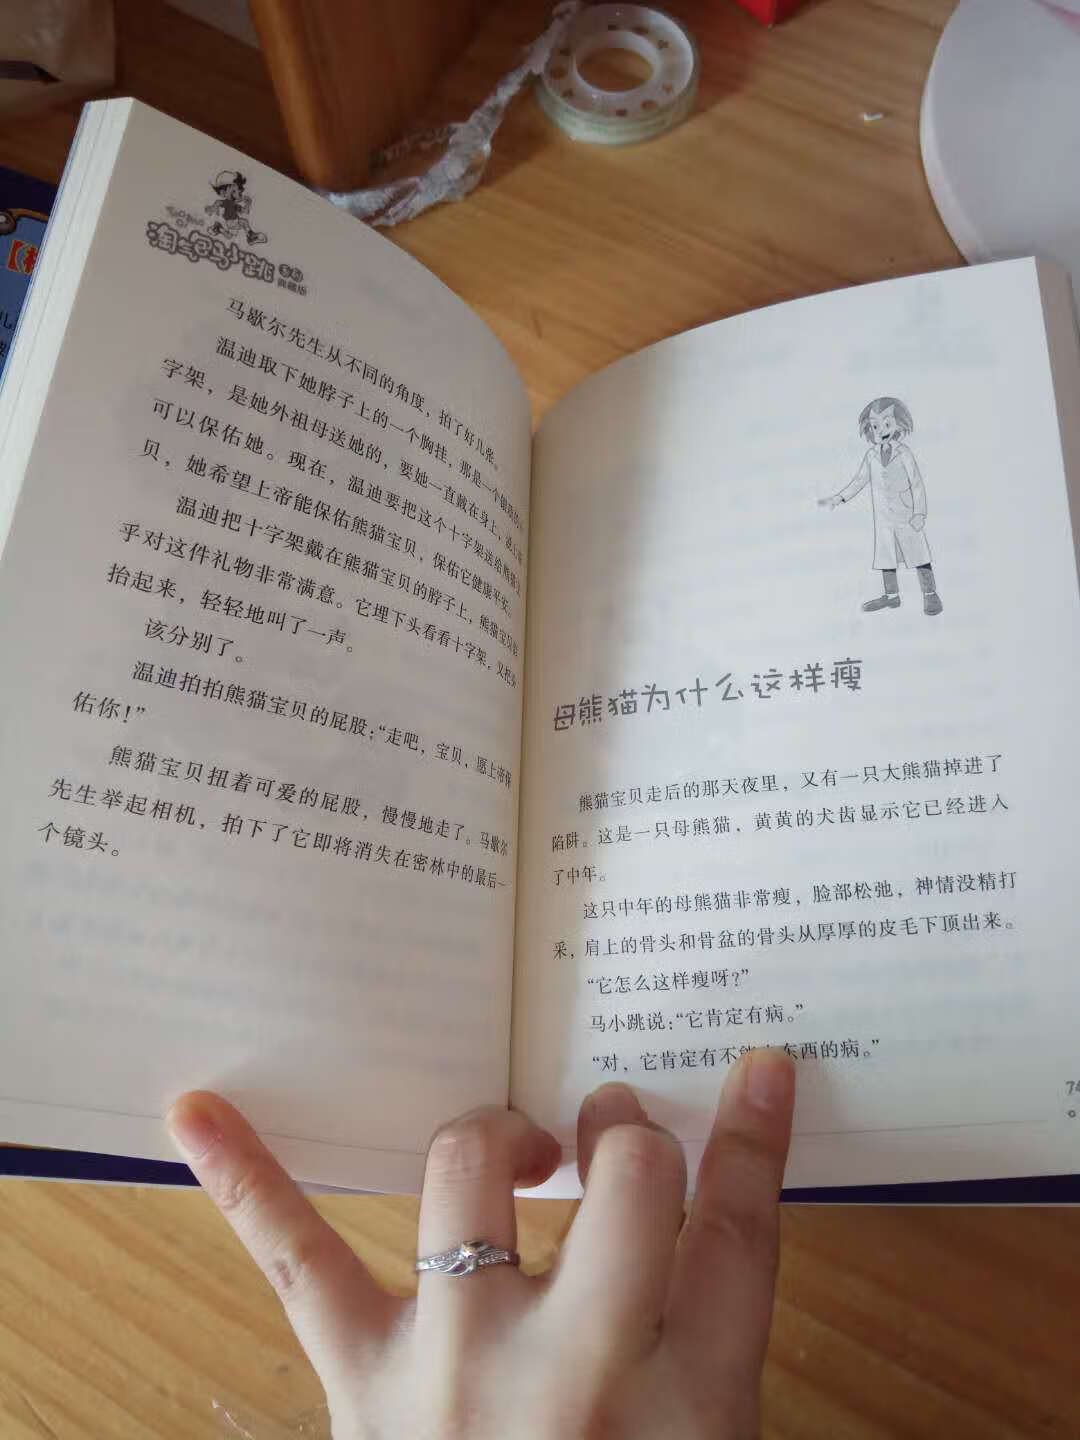 淘气包马小跳
系列
典藏版
马歇尔先生从不同的角度，拍了好几张。
温迪取下她脖子上的一个胸挂，那是一个银质的十
字架，是她外祖母送她的，要她一直戴在身上，
可以保佑她。现在，温迪要把这个十字架送给熊猫宝
贝，她希望上帝能保佑熊猫宝贝，保佑它健康平安。
温迪把十字架戴在熊猫宝贝的脖子上，熊猫宝贝似
乎对这件礼物非常满意。它埋下头看看十字架，又把头
抬起来，轻轻地叫了一声。
该分别了。
温迪拍拍熊猫宝贝的屁股：“走吧，宝贝，愿上帝保
佑你！”
熊猫宝贝扭着可爱的屁股，慢慢地走了。马歇尔
先生举起相机，拍下了它即将消失在密林中的最后一
个镜头。
母熊猫为什么这样瘦
熊猫宝贝走后的那天夜里，又有一只大熊猫掉进了
陷阱。这是一只母熊猫，黄黄的犬齿显示它已经进入
了中年。
这只中年的母熊猫非常瘦，脸部松弛，神情没精打
采，肩上的骨头和骨盆的骨头从厚厚的皮毛下顶出来。
“它怎么这样瘦呀？”
马小跳说：“它肯定有病。”
“对，它肯定有不能东西的病。”